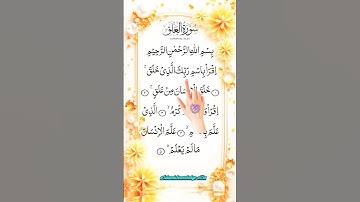 سُورَةُ الْعَلَقِ
بِسْمِ اللهِ الرَّحْمٰنِ الرَّحِيْمِ
اِقْرَاْ بِاسْمِ رَبِّكَ الَّذِىْ خَلَقَ
خَلَقَ الْاِنْسَانَ مِنْ عَلَقٍ
اِقْرَاْ الَّذِىْ
عَلَّمَ عَلَّمَ الْاِنْسَانَ
مَا لَمْ يَعْلَمْ